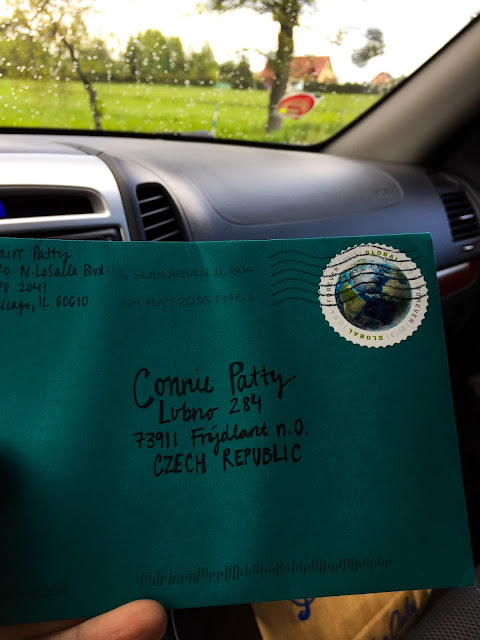 aire Patty
20 N. LaSalle Blvd.
2041
icago, IL 60610
S SUBURBAN IL 604
04 MAY 2016 PM 6 L
GLOBAL
FOREVER
GLOBAL
Connie Patty
Lubno 284
73911 Frýdlant n.O.
CZECH REPUBLIC